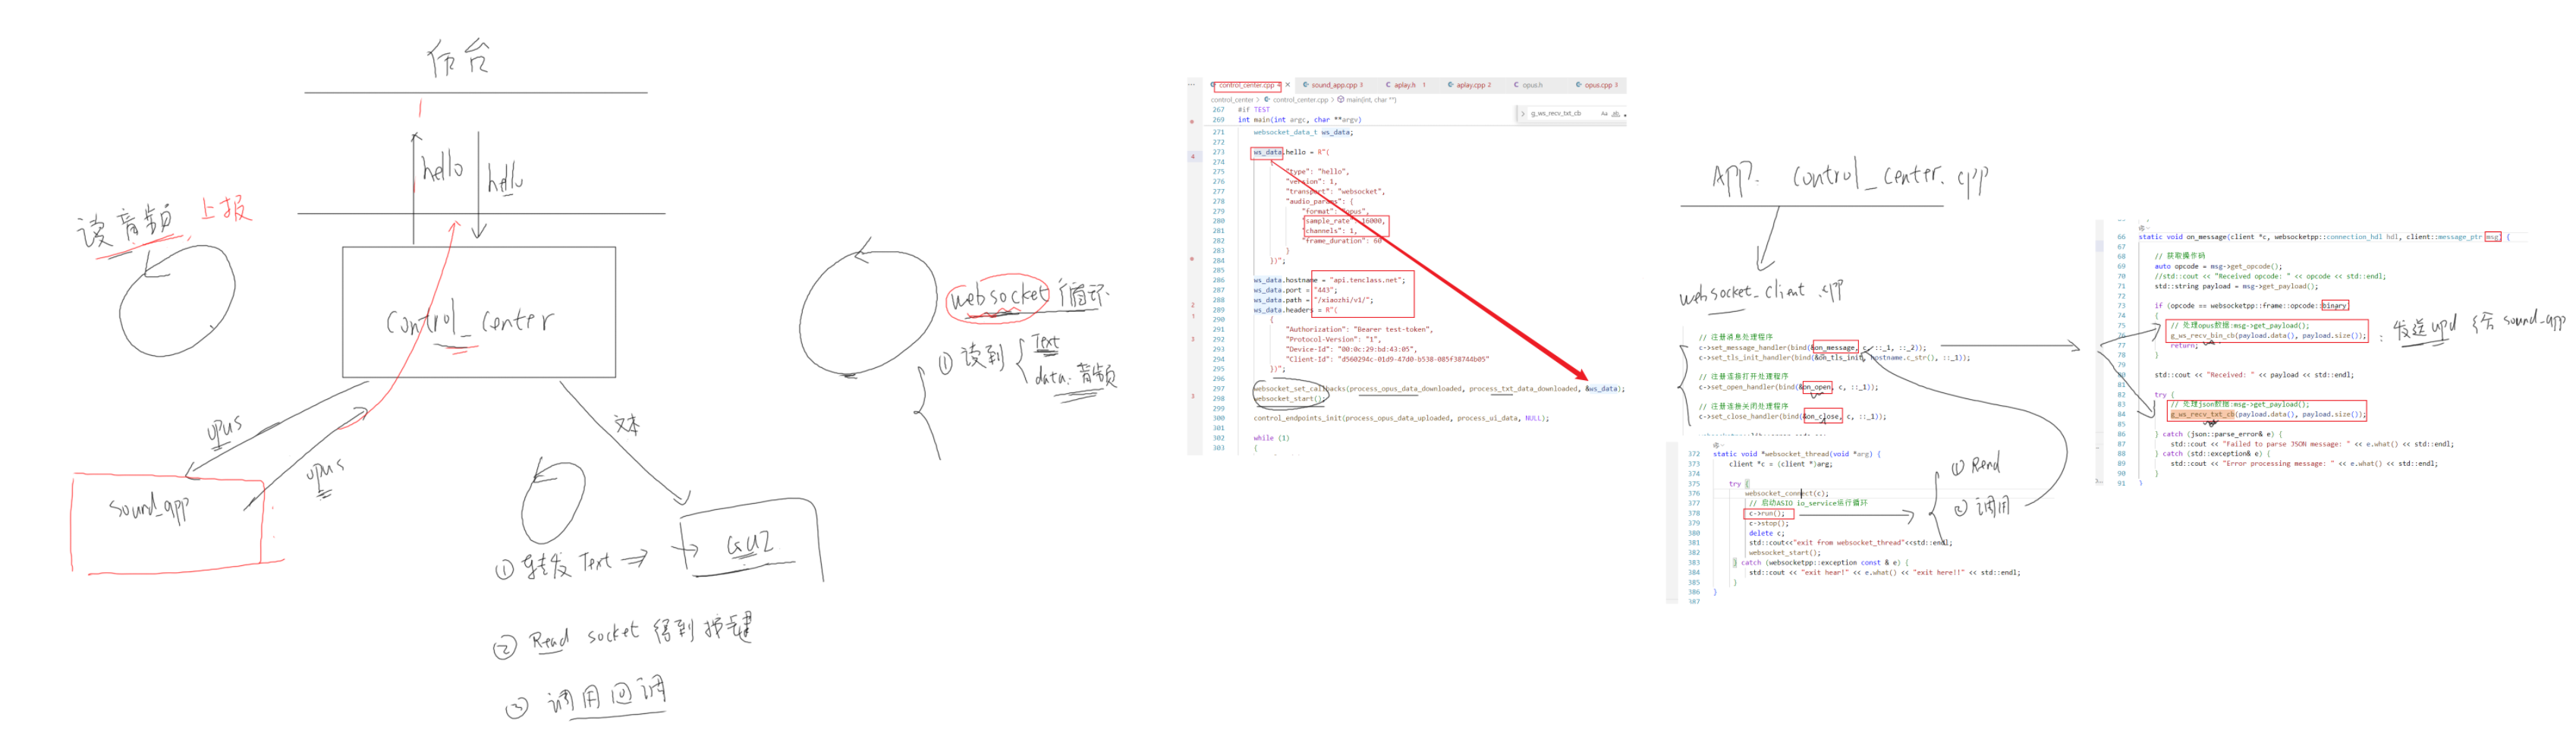 后台
hello
hello
读音频 上报
control_center
opus
opus
文本
sound_app
GUI
① 转发 Text →
② Read socket 得到按键
③ 调用回调
websocket 循环
① 读到 { Text
data. 音频
control_center.cpp 4 × sound_app.cpp 3 aplay.h 1 aplay.cpp 2 opus.h opus.cpp 3
control_center > control_center.cpp > main(int, char **)
g_ws_recv_txt_cb
267 #if TEST
269 int main(int argc, char **argv)
271 websocket_data_t ws_data;
272
273 ws_data.hello = R"(
274
275 "type": "hello",
276 "version": 1,
277 "transport": "websocket",
278 "audio_params": {
279 "format": "opus",
280 "sample_rate": 16000,
281 "channels": 1,
282 "frame_duration": 60
283 }
284 })";
285
286 ws_data.hostname = "api.tenclass.net";
287 ws_data.port = "443";
288 ws_data.path = "/xiaozhi/v1/";
289 ws_data.headers = R"(
290 {
291 "Authorization": "Bearer test-token",
292 "Protocol-Version": "1",
293 "Device-Id": "00:0c:29:bd:43:05",
294 "Client-Id": "d560294c-01d9-47d0-b538-085f38744b05"
295 })";
296
297 websocket_set_callbacks(process_opus_data_downloaded, process_txt_data_downloaded, &ws_data);
298 websocket_start();
299
300 control_endpoints_init(process_opus_data_uploaded, process_ui_data, NULL);
301
302 while (1)
303 {
APP: control_center.cpp
websocket_client.cpp
// 注册消息处理程序
c->set_message_handler(bind(&on_message, c, ::_1, ::_2));
c->set_tls_init_handler(bind(&on_tls_init, hostname.c_str(), ::_1));
// 注册连接打开处理程序
c->set_open_handler(bind(&on_open, c, ::_1));
// 注册连接关闭处理程序
c->set_close_handler(bind(&on_close, c, ::_1));
372 static void *websocket_thread(void *arg) {
373 client *c = (client *)arg;
374
375 try {
376 websocket_connect(c);
377 // 启动ASIO io_service运行循环
378 c->run();
379 c->stop();
380 delete c;
381 std::cout<<"exit from websocket_thread"<<std::endl;
382 websocket_start();
383 } catch (websocketpp::exception const & e) {
384 std::cout << "exit hear!" << e.what() << "exit here!!" << std::endl;
385 }
386 }
387
① Read
② 调用
66 static void on_message(client *c, websocketpp::connection_hdl hdl, client::message_ptr msg) {
67
68 // 获取操作码
69 auto opcode = msg->get_opcode();
70 //std::cout << "Received opcode: " << opcode << std::endl;
71 std::string payload = msg->get_payload();
72
73 if (opcode == websocketpp::frame::opcode::binary)
74 {
75 // 处理opus数据:msg->get_payload();
76 g_ws_recv_bin_cb(payload.data(), payload.size());
77 return;
78 }
79
80 std::cout << "Received: " << payload << std::endl;
81
82 try {
83 // 处理json数据:msg->get_payload();
84 g_ws_recv_txt_cb(payload.data(), payload.size());
85
86 } catch (json::parse_error& e) {
87 std::cout << "Failed to parse JSON message: " << e.what() << std::endl;
88 } catch (std::exception& e) {
89 std::cout << "Error processing message: " << e.what() << std::endl;
90 }
91 }
: 发送 upd 给 sound_app